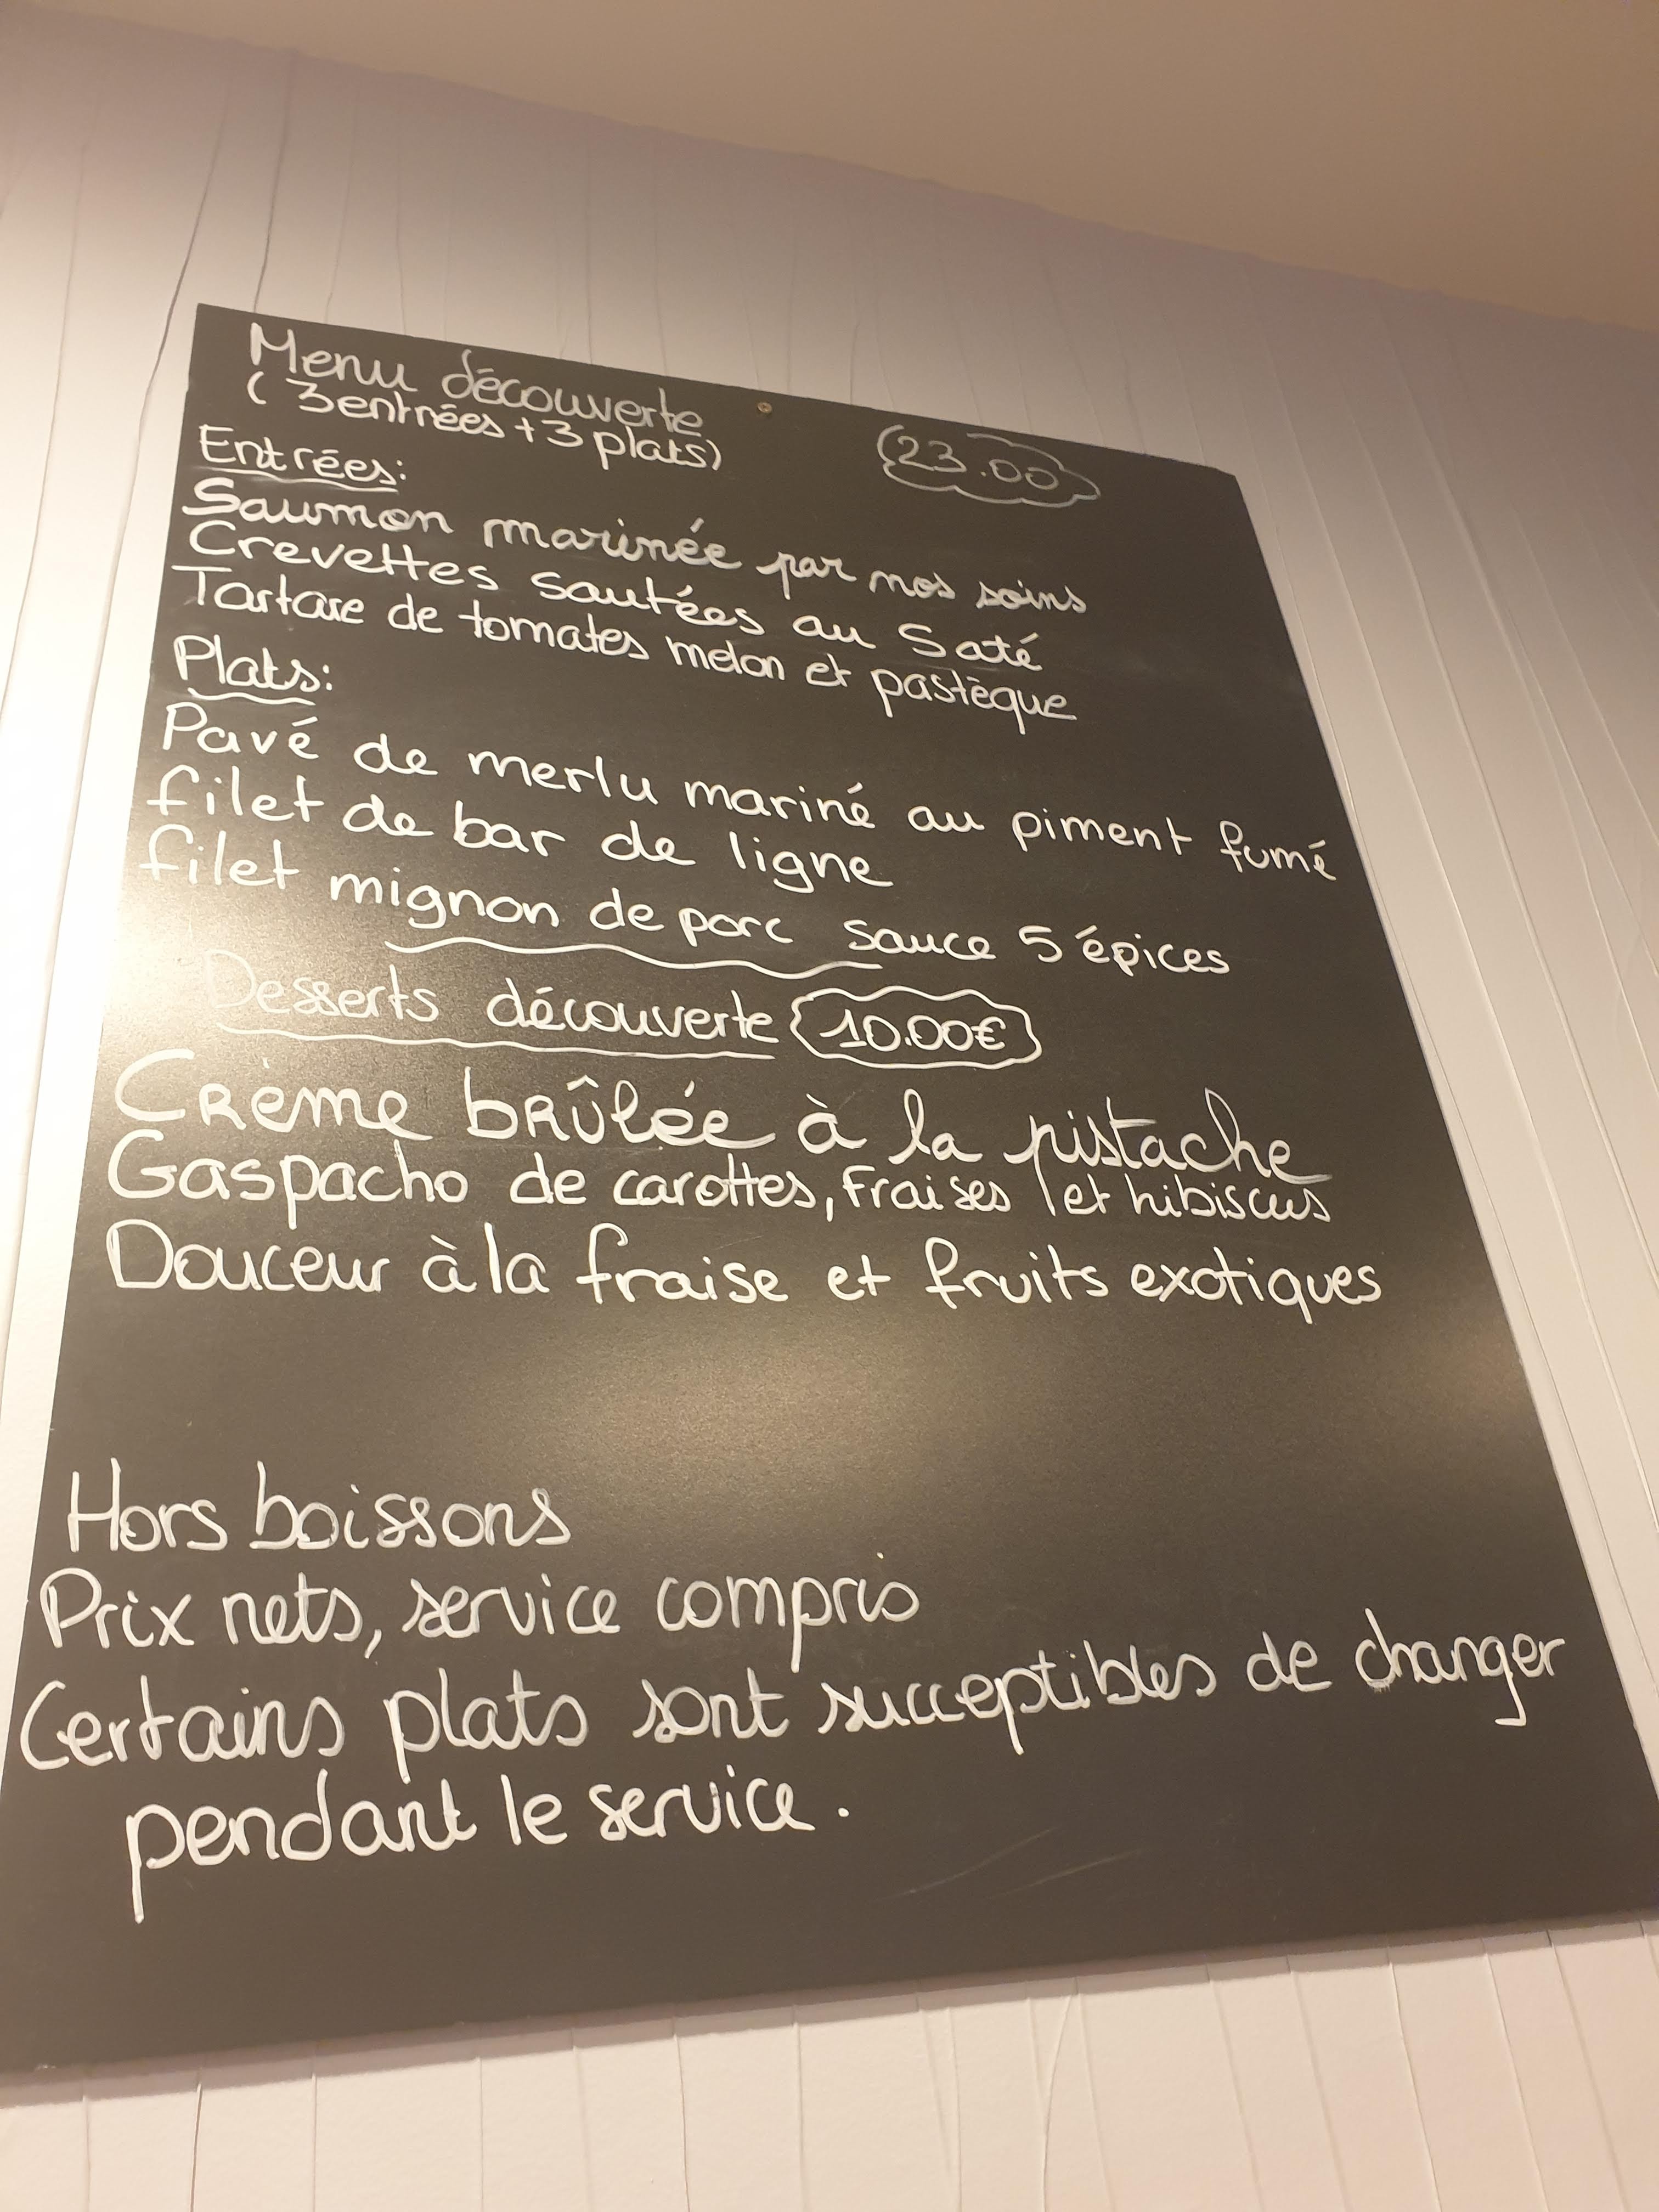 Menu découverte
(3 entrées + 3 plats)
23.00
Entrées:
Saumon marinée par nos soins
Crevettes sautées au Saté
Tartare de tomates melon et pastèque
Plats:
Pavé de merlu mariné au piment fumé
filet de bar de ligne
filet mignon de porc sauce 5 épices
Desserts découverte 10.00€
Crème brûlée à la pistache
Gaspacho de carottes, fraises et hibiscus
Douceur à la fraise et fruits exotiques
Hors boissons
Prix nets, service compris
Certains plats sont succeptibles de changer
pendant le service.